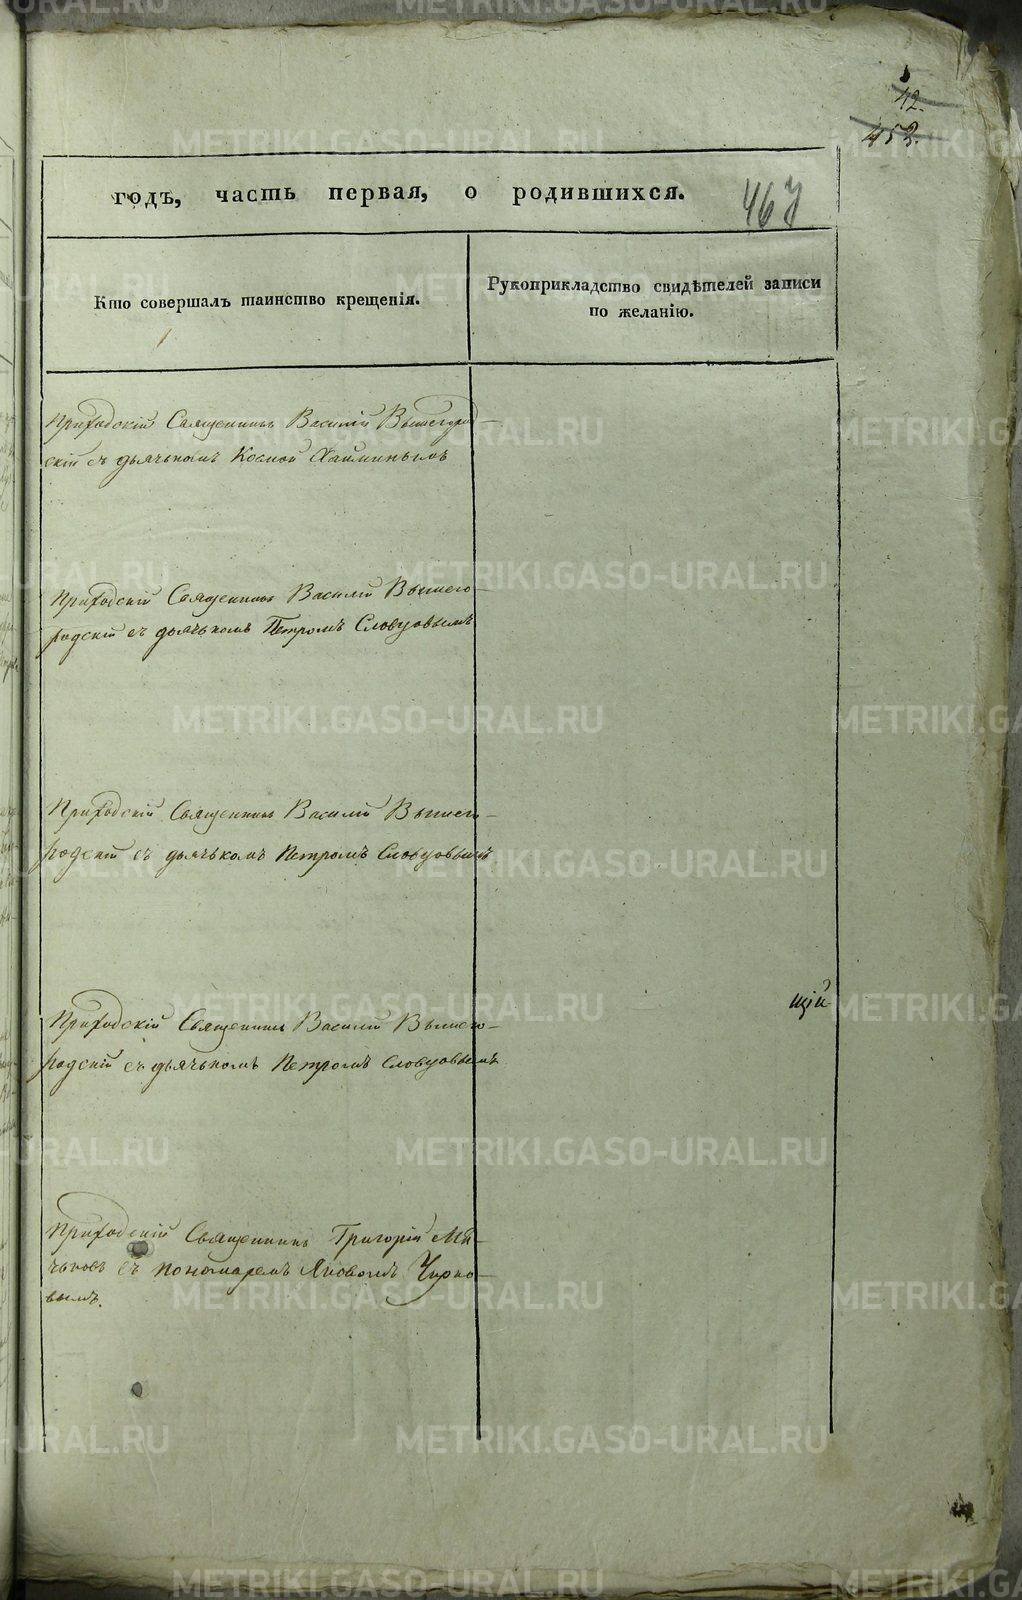 42.
453.
годъ, часть первая, о родившихся.
467
Кто совершалъ таинство крещенія.
Рукоприкладство свидѣтелей записи
по желанію.
Приходскій Священникъ Василій Вышегород-
скій съ дьячькомъ Космой
Приходскій Священникъ Василій Вышего-
родскій съ дьячькомъ Петромъ Словцовымъ
Приходскій Священникъ Василій Вышего-
родскій съ дьячькомъ Петромъ Словцовымъ
щій
Приходскій Священникъ Василій Вышего-
родскій съ дьячькомъ Петромъ Словцовымъ
Приходскій Священникъ Григорій Ми-
чьковъ съ пономаремъ Яковомъ Чирко-
вымъ.
METRIKI.GASO-URAL.RU